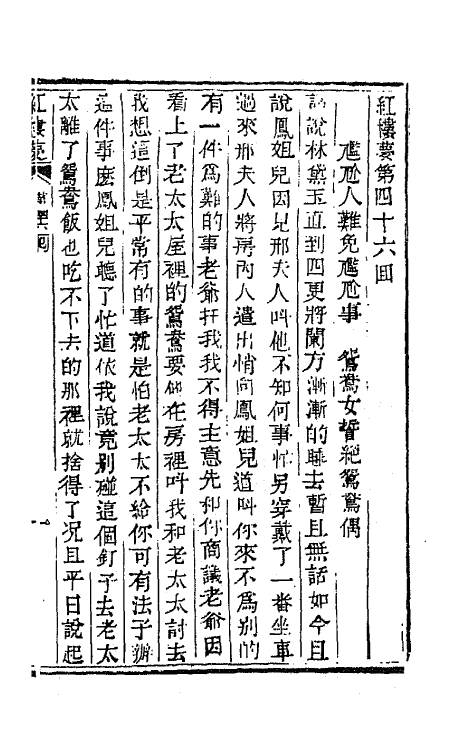 紅樓夢第四十六回
尷尬人難免尷尬事 鴛鴦女誓絕鴛鴦偶
話說林黛玉直到四更將闌方漸漸的睡去暫且無話如今且
說鳳姐兒因見邢夫人叫他不知何事忙另穿戴了一番坐車
過來邢夫人將房內人遣出悄向鳳姐兒道叫你來不爲別的
有一件爲難的事老爺托我我不得主意先和你商議老爺因
看上了老太太屋裡的鴛鴦要他在房裡叫我和老太太討去
我想這倒是平常有的事就是怕老太太不給你可有法子辦
這件事麽鳳姐兒聽了忙道依我說竟別碰這個釘子去老太
太離了鴛鴦飯也吃不下去的那裡就捨得了况且平日說起
紅樓夢